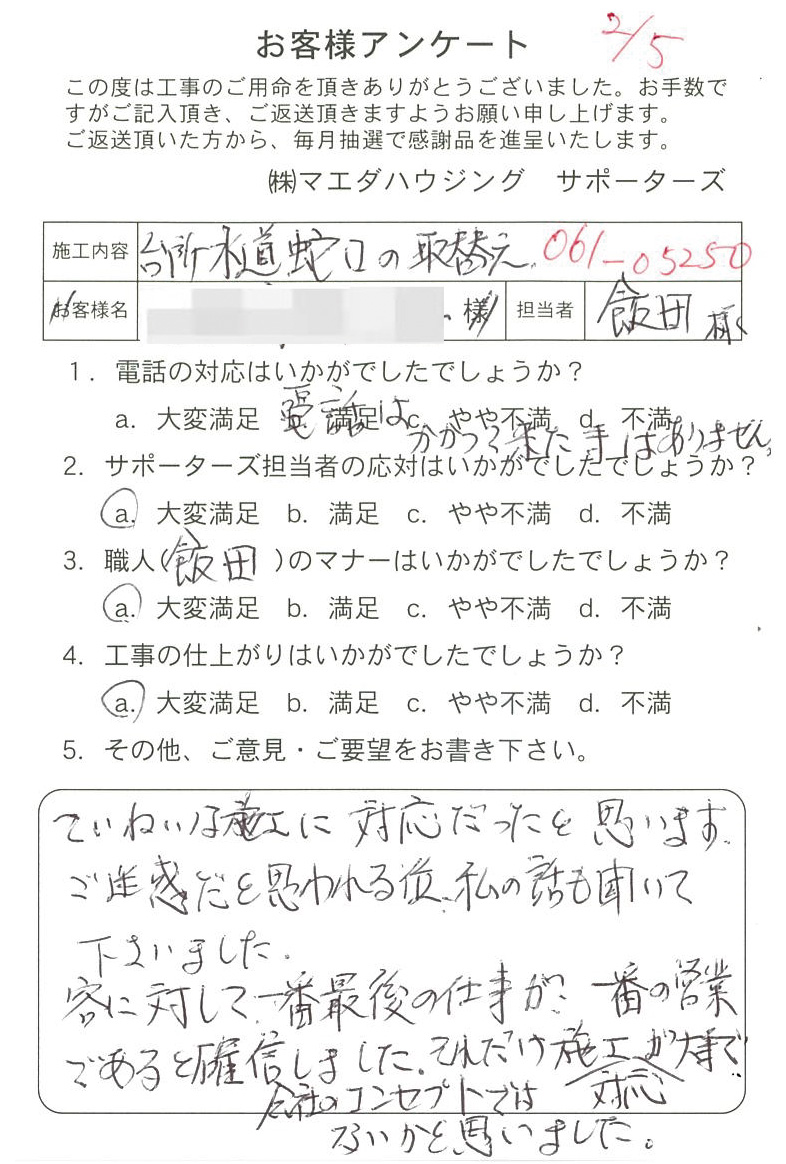 2/5
お客様アンケート
この度は工事のご用命を頂きありがとうございました。お手数で
すがご記入頂き、ご返送頂きますようお願い申し上げます。
ご返送頂いた方から、毎月抽選で感謝品を進呈いたします。
㈱マエダハウジング　サポーターズ
施工内容 台所水道蛇口の取替え 061-05250
お客様名 様 担当者 飯田 様
1. 電話の対応はいかがでしたでしょうか？
a. 大変満足 b. 満足 c. やや不満 d. 不満
電話はかかって来た事はありません
2. サポーターズ担当者の応対はいかがでしたでしょうか？
a. 大変満足 b. 満足 c. やや不満 d. 不満
3. 職人(飯田)のマナーはいかがでしたでしょうか？
a. 大変満足 b. 満足 c. やや不満 d. 不満
4. 工事の仕上がりはいかがでしたでしょうか？
a. 大変満足 b. 満足 c. やや不満 d. 不満
5. その他、ご意見・ご要望をお書き下さい。
ていねいな施工に対応だったと思います。
ご迷惑だと思われる位、私の話も聞いて
下さいました。
客に対して一番最後の仕事が、一番の営業
であると確信しました。それだけ施工が大事で
対応
会社のコンセプトでは
ないかと思いました。